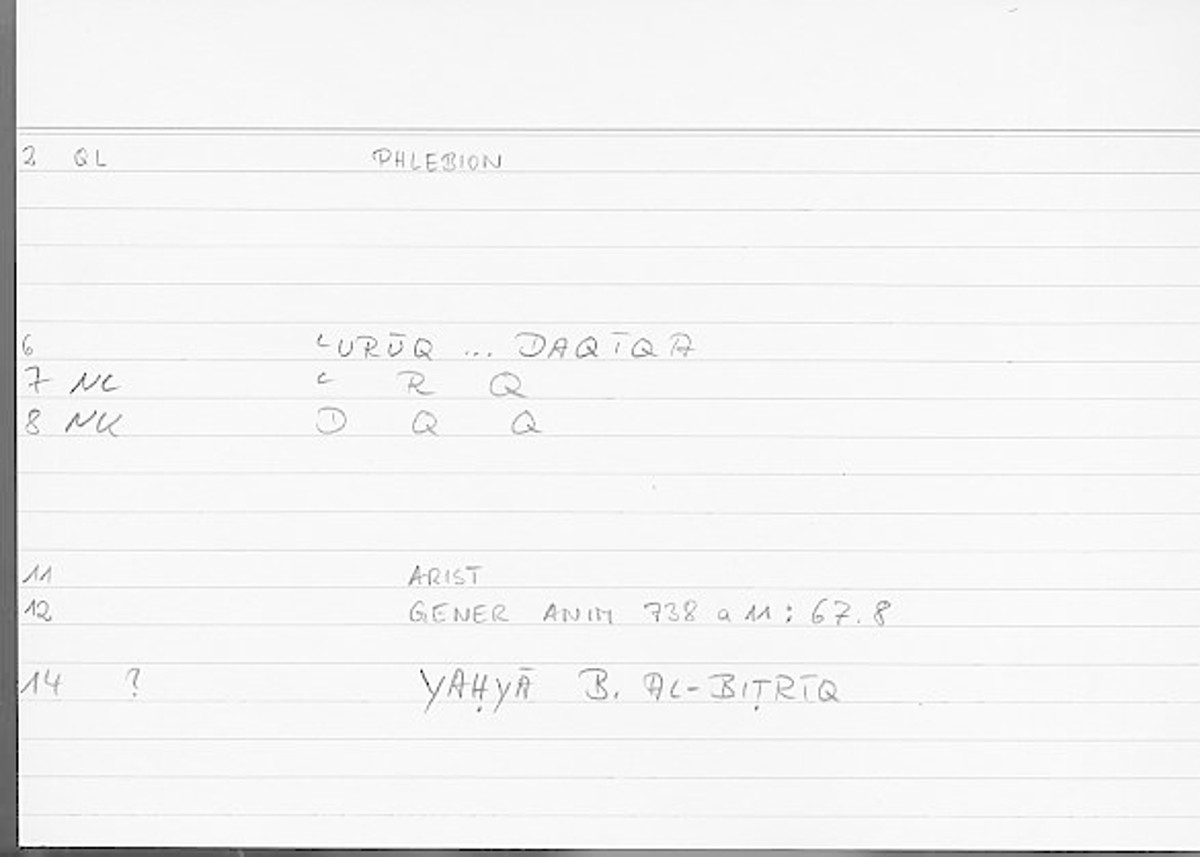 2 QL PHLEBION
6 ʿURŪQ ... DAQĪQA
7 NC ʿ R Q
8 NK D Q Q
11 ARIST
12 GENER ANIM 738 a 11 : 67.8
14 ? YAḤYĀ B. AL-BIṬRĪQ